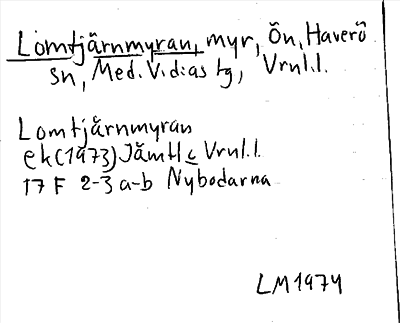 Lomtjärnmyran, myr, Ön, Haverö
sn, Med. V. dias tg, Vrnl.l.
Lomtjärnmyran
ek (1973) Jämtl c Vrnl.l.
17 F 2-3 a-b Nybodarna
LM 1974